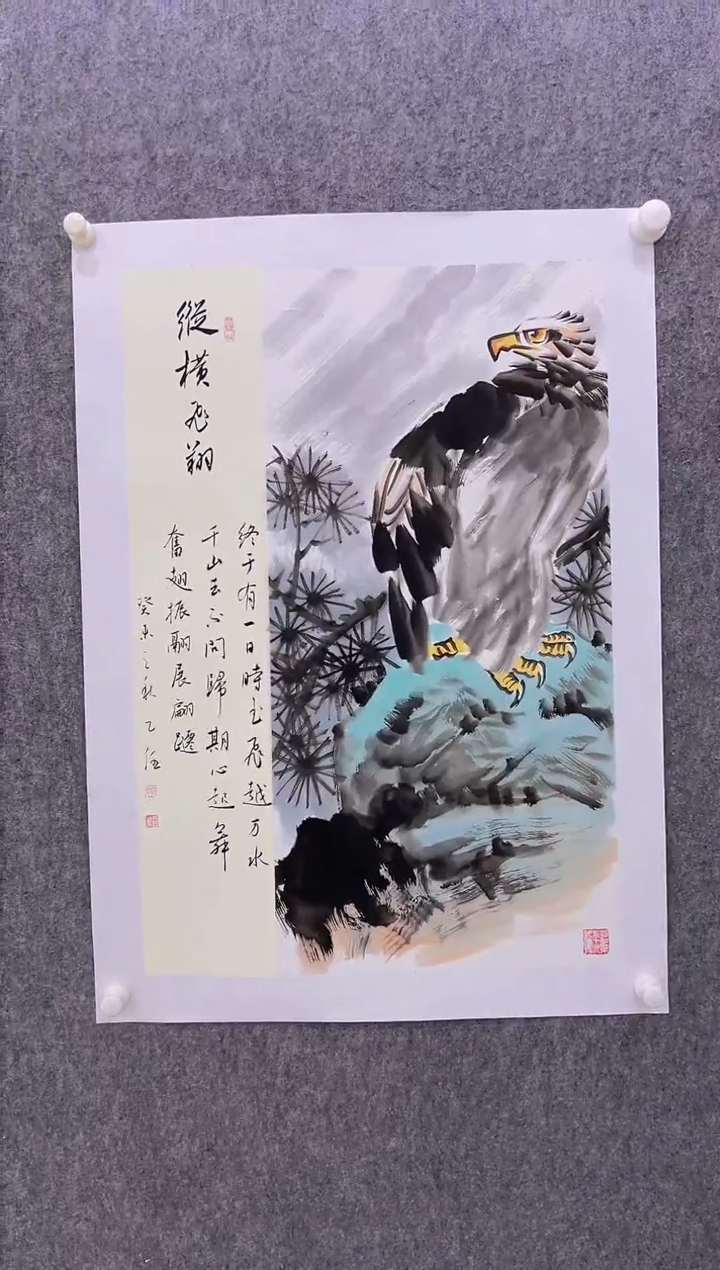 縱橫飛翔
終于有一日時
飛越万水
千山去不問歸期心起舞
奮翅振翮展翩躚
癸卯之秋乙任